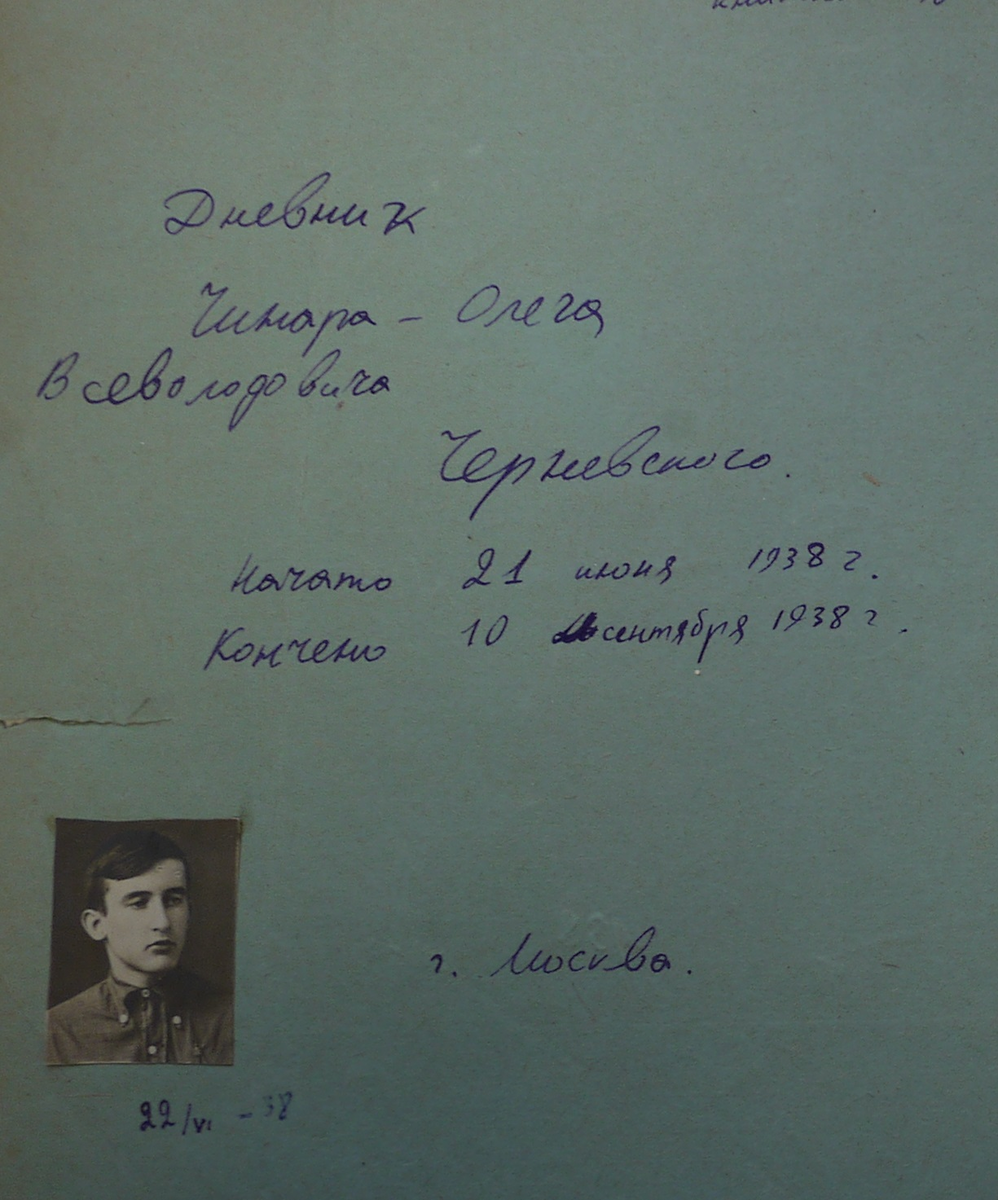 Дневник
Чинара – Олега
Всеволодовича
Черневского.
Начато 21 июня 1938 г.
Кончено 10 сентября 1938 г.
г. Москва.
22/VI - 38